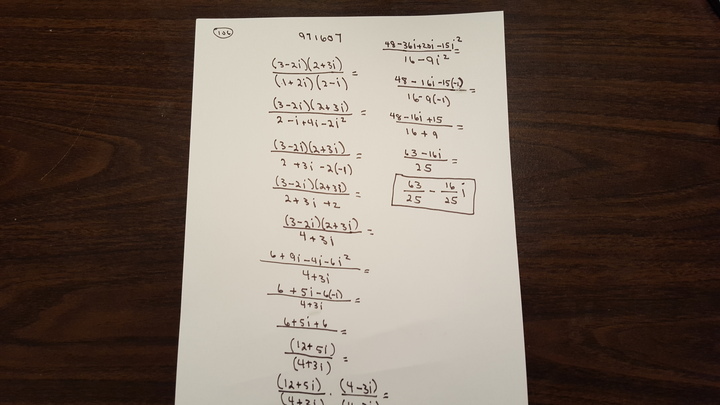 106
971607
(3-2i)(2+3i)
(1+2i)(2-i) =
(3-2i)(2+3i)
2-i+4i-2i² =
(3-2i)(2+3i)
2+3i-2(-1) =
(3-2i)(2+3i)
2+3i+2 =
(3-2i)(2+3i)
4+3i =
6+9i-4i-6i²
4+3i =
6+5i-6(-1)
4+3i =
6+5i+6 =
(12+5i)
(4+3i) =
(12+5i) · (4-3i) =
(4+3i)
48-36i+20i-15i²
16-9i² =
48-16i-15(-1)
16-9(-1) =
48-16i+15
16+9 =
63-16i
25 =
63 - 16 i
25 25